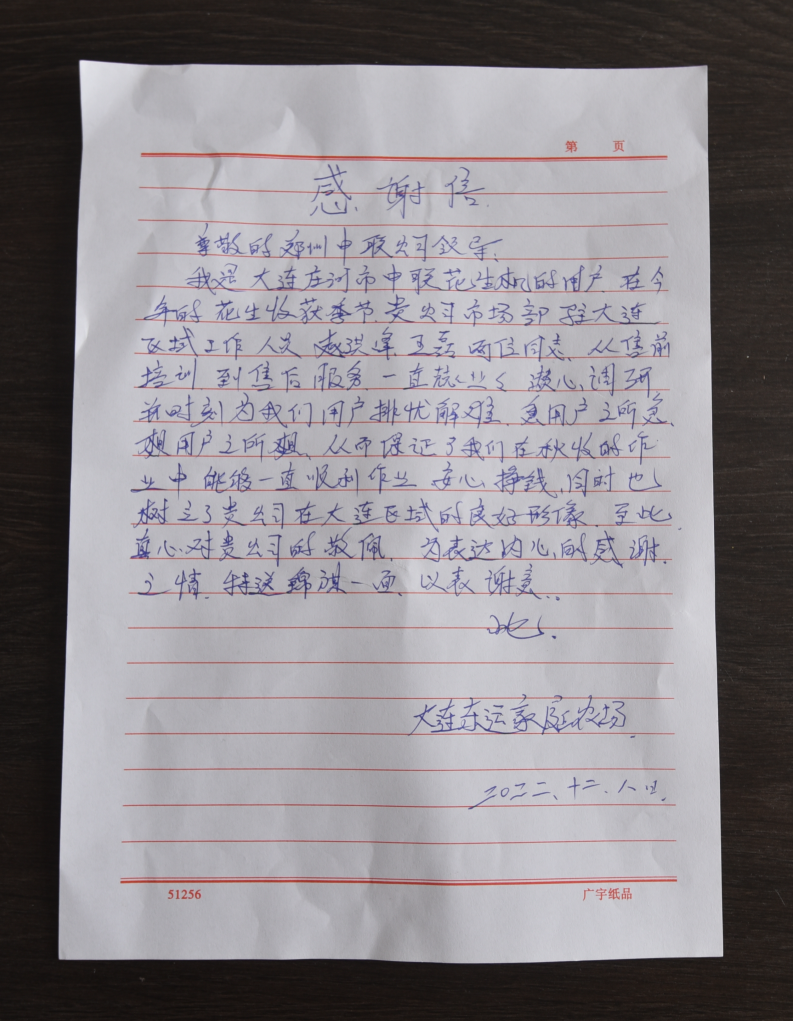 第 页
感谢信
尊敬的郑州中联公司领导:
我是大连庄河市中联花生机的用户.在今
年的花生收获季节.贵公司市场部驻大连
区域工作人员 洪峰.王磊两位同志.从售前
培训.到售后服务.一直兢兢业业 潜心调研
并时刻为我们用户排忧解难.急用户之所急.
想用户之所想.从而保证了我们在秋收的作
业中能够一直顺利作业 安心挣钱,同时也
树立了贵公司在大连区域的良好形像.至此
真心对贵公司的敬佩. 为表达内心的感谢.
之情.特送锦旗一面.以表谢意..
此.
大连东运家庭农场.
二〇二二、十二.八日.
51256
广宇纸品